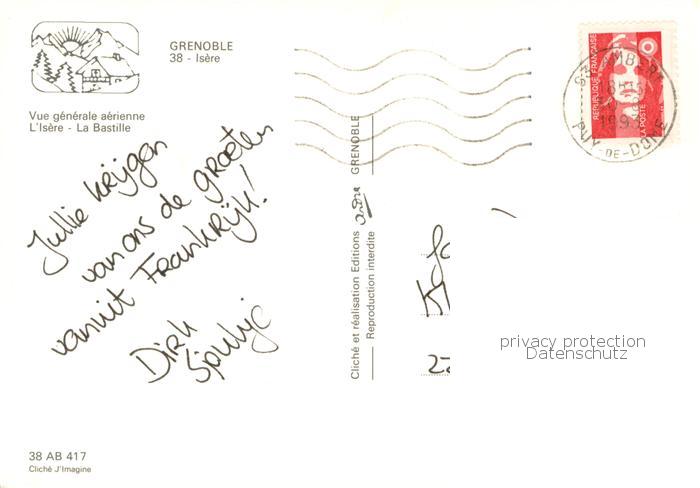 GRENOBLE
38 - Isère
Vue générale aérienne
L'Isère - La Bastille
Jullie krijgen
van ons de groeten
vanuit Frankrijk!
Dirk
38 AB 417
Cliché J'Imagine
Cliché et réalisation Editions GRENOBLE
Reproduction interdite
REPUBLIQUE FRANÇAISE
LA POSTE
PUY-DE-DOME
22
privacy protection
Datenschutz